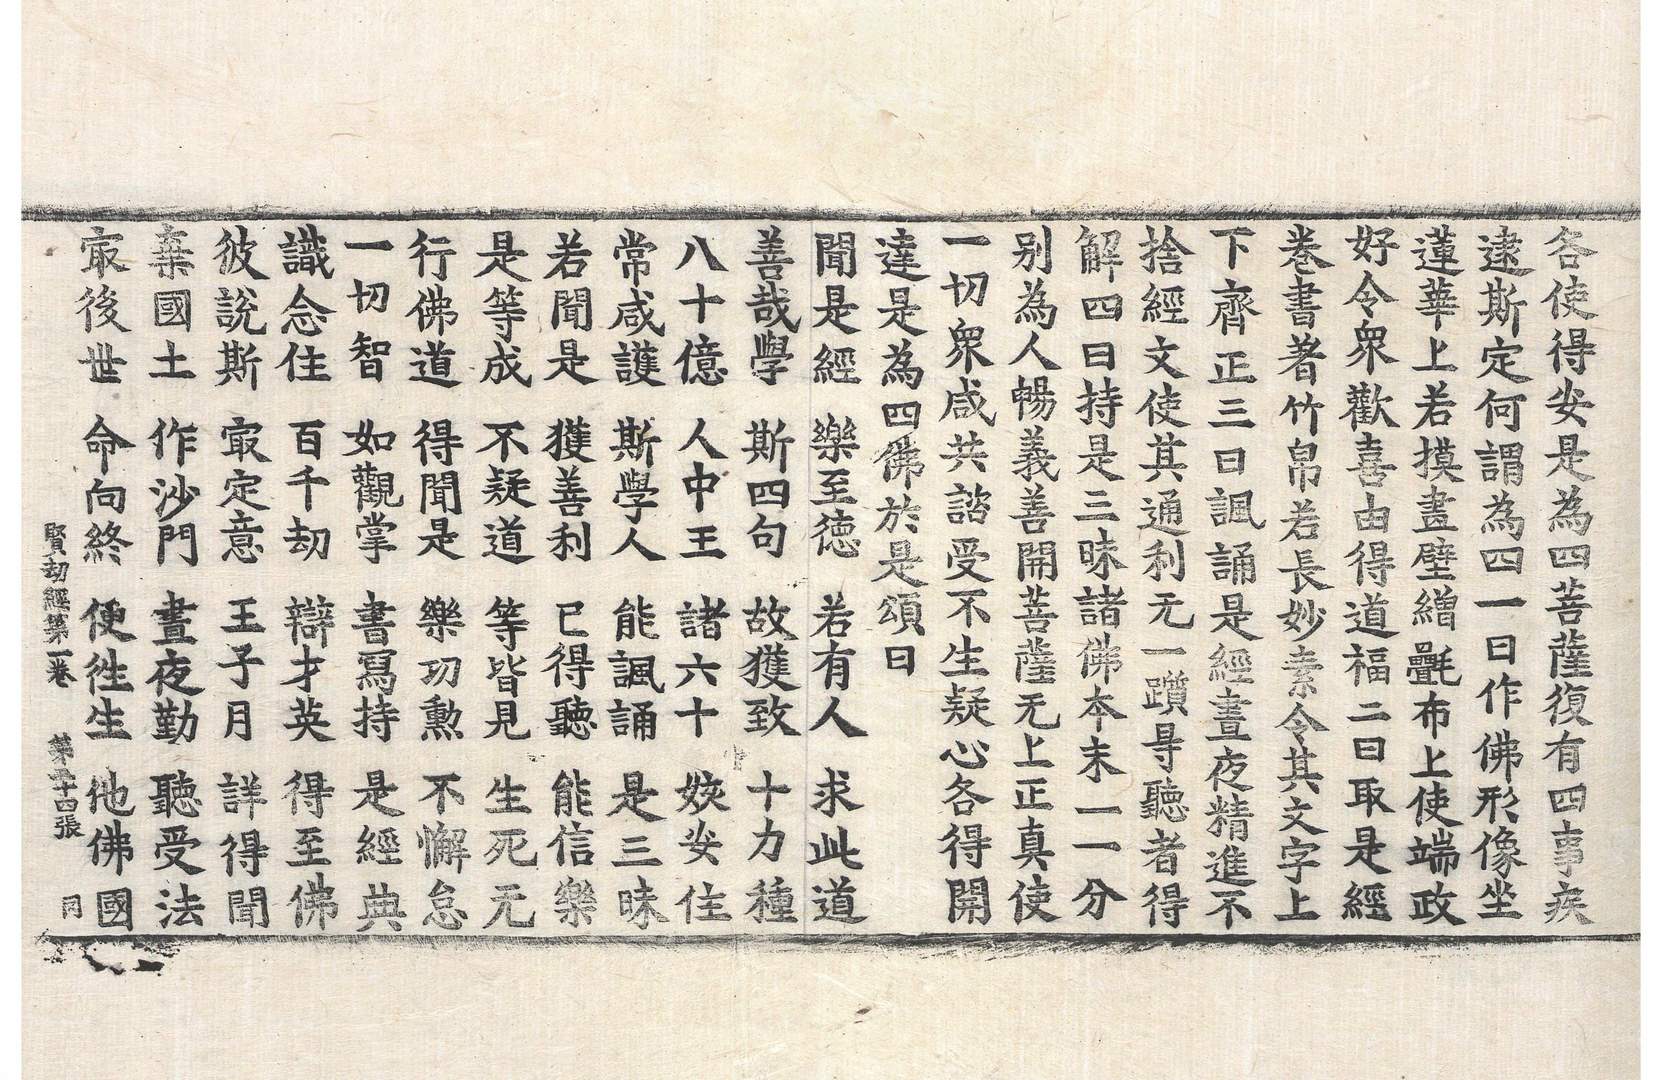 各使得安是為四菩薩復有四事疾
逮斯定何謂為四一曰作佛形像坐
蓮華上若摸畫壁繒㲲布上使端政
好令衆歡喜由得道福二曰取是經
卷書著竹帛若長妙素令其文字上
下齊正三曰諷誦是經晝夜精進不
捨經文使其通利无一躓㝵聽者得
解四曰持是三昧諸佛本末一一分
别為人暢義善開菩薩无上正真使
一切衆咸共諮受不生疑心各得開
達是為四佛於是頌曰
聞是經　樂至徳　若有人　求此道
善哉學　斯四句　故獲致　十力種
八十億　人中王　諸六十　姟安住
常咸護　斯學人　能諷誦　是三昧
若聞是　獲善利　已得聽　能信樂
是等成　不疑道　等皆見　生死无
行佛道　得聞是　樂功勲　不懈怠
一切智　如觀掌　書寫持　是經典
識念住　百千劫　辯才英　得至佛
彼說斯　㝡定意　王子月　詳得聞
棄國土　作沙門　晝夜勤　聽受法
㝡後世　命向終　便徃生　他佛國
賢劫經第一卷　第二十四張　同